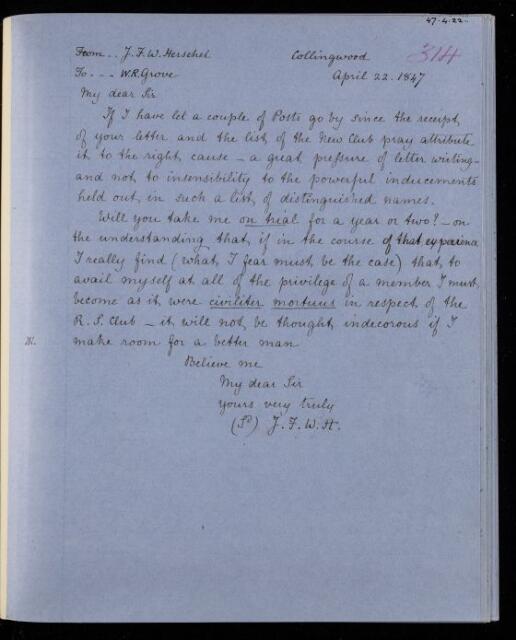 47.4.22
314
From .. J.F.W. Herschel Collingwood
To . . . W.R. Grove April 22. 1847
My dear Sir
If I have let a couple of Posts go by since the receipt
of your letter and the list of the New Club pray attribute
it to the right cause – a great pressure of letter writing –
and not to insensibility to the powerful inducements
held out in such a list of distinguished names.
Will you take me on trial for a year or two? – on
the understanding that if in the course of that experience
I really find (what I fear must be the case) that to
avail myself at all of the privilege of a member I must
become as it were civiliter mortuus in respect of the
R. S. Club – it will not be thought indecorous if I
make room for a better man
Believe me
My dear Sir
yours very truly
(Sd) J. F. W. H.